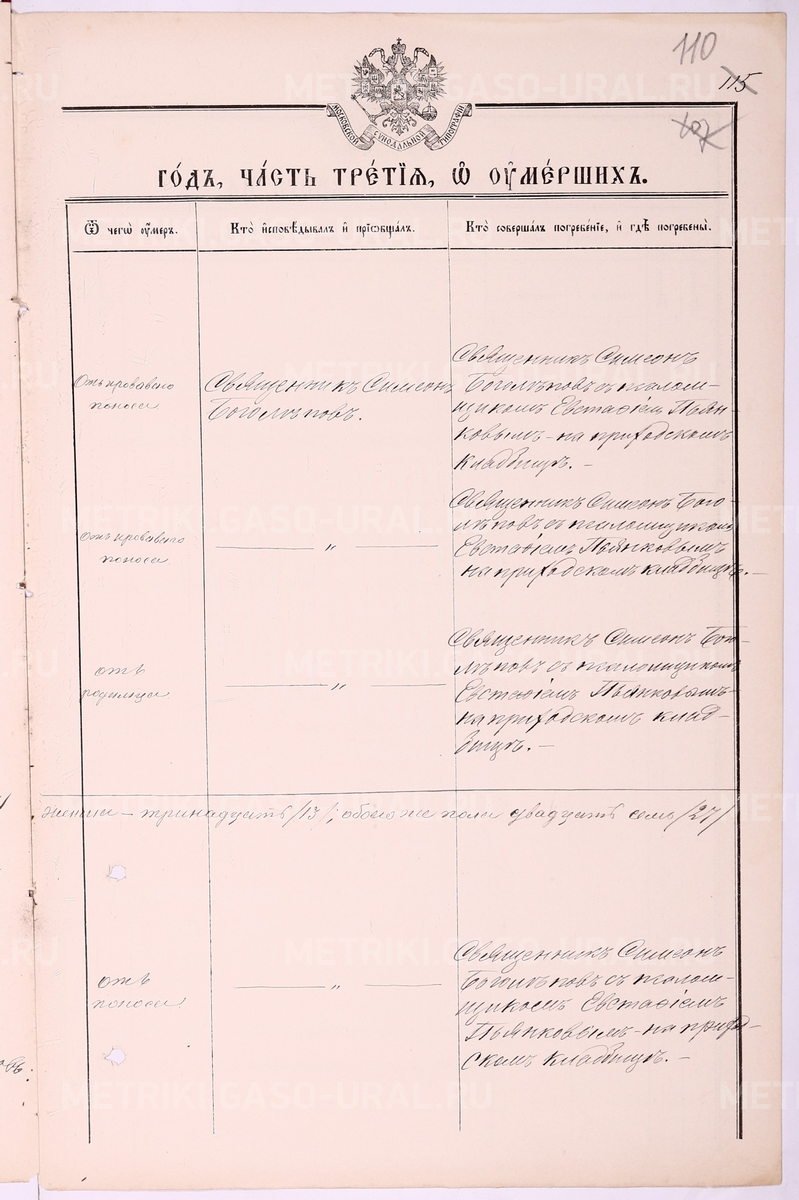 110
115
107
МОСКОВСКОЙ СѴНОДАЛЬНОЙ ТИПОГРАФІИ
ГО́ДЪ, ЧА́СТЬ ТРЕ́ТІѦ, Ѽ ОУ҆МЕ́РШИХЪ.
Ѿ чегѡ̀ оу҆́меръ.
Кто̀ и҆сповѣ́дывалъ и҆ прїѡбща́лъ.
Кто̀ соверша́лъ погребе́нїе, и҆ гдѣ̀ погребены̀.
Отъ кроваваго
поноса
Священникъ Симеонъ
Боголѣповъ.
Священникъ Симеонъ
Боголѣповъ съ псалом-
щикомъ Евстафіемъ Пьян-
ковымъ - на приходскомъ
кладбищѣ. -
Отъ кроваваго
поноса
— „ —
Священникъ Симеонъ Бого-
лѣповъ съ псаломщикомъ
Евстафіемъ Пьянковымъ
на приходскомъ кладбищѣ. -
отъ
родимца
— „ —
Священникъ Симеонъ Бого-
лѣповъ съ псаломщикомъ
Евстафіемъ Пьянковымъ-
на приходскомъ клад-
бищѣ. -
тринадцать /13/; обоего же пола двадцать семь /27/
отъ
поноса
— „ —
Священникъ Симеонъ
Боголѣповъ съ псалом-
щикомъ Евстафіемъ
Пьянковымъ - на приход-
скомъ кладбищѣ. -
METRIKI.GASO-URAL.RU